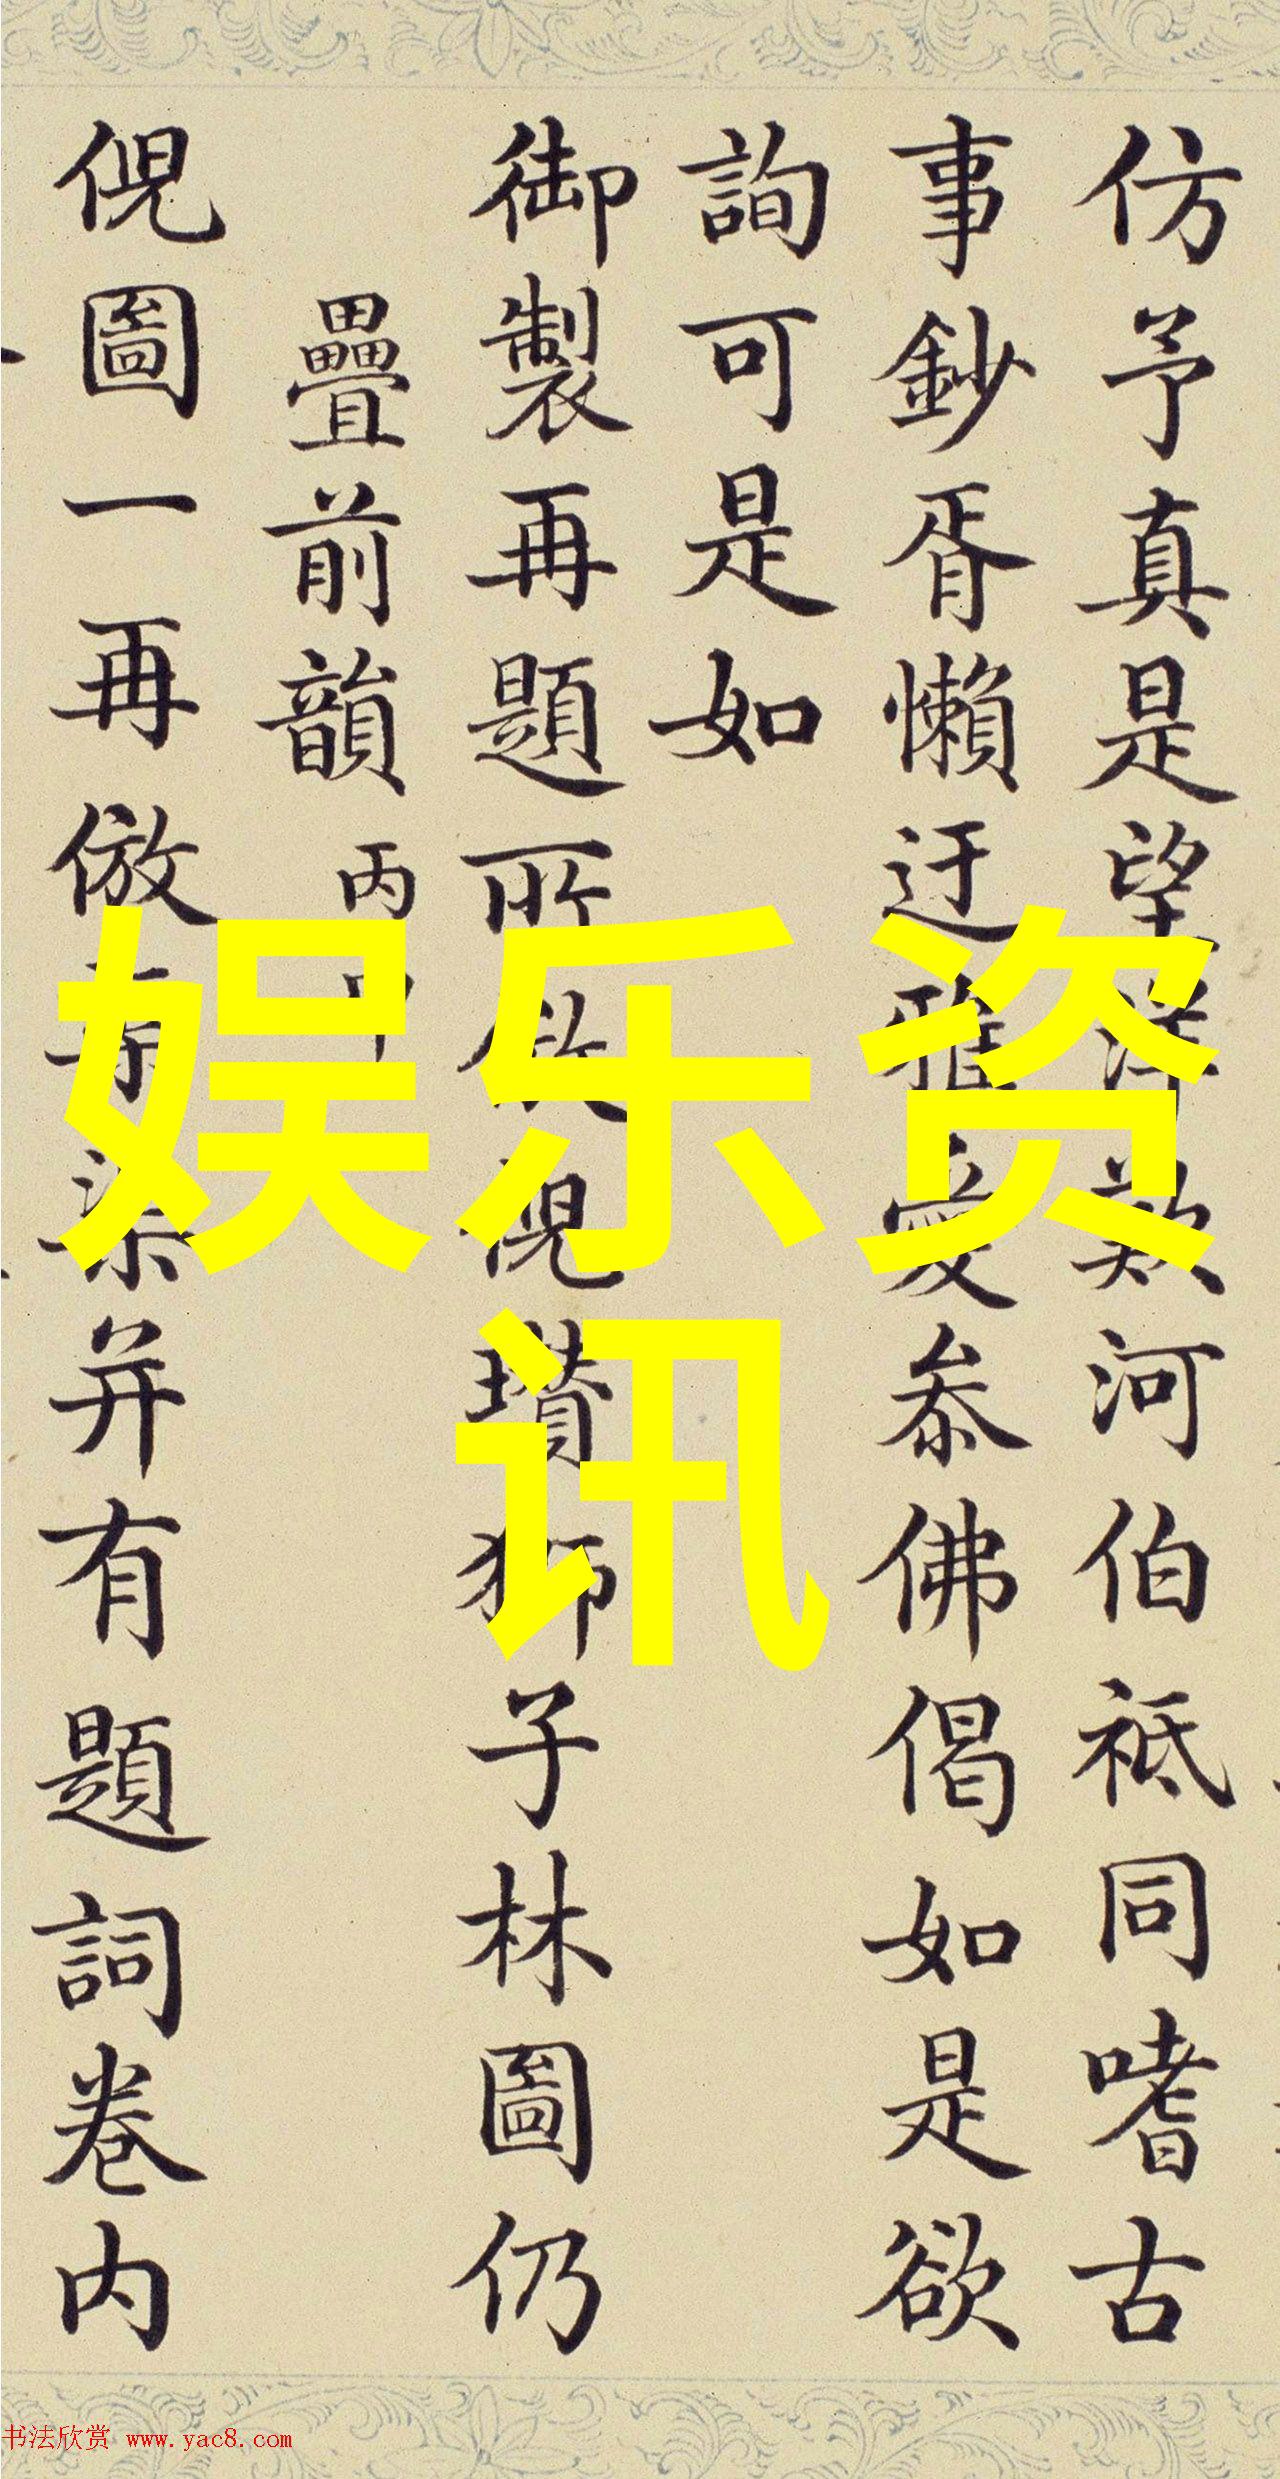 仿予真是望洋歎河伯祇同嗜古
事鈔胥懶迂雅愛叅佛偈如是欲
詢可是如
御製再題所倣倪瓚獅子林圖仍
疊前韻 丙申
倪圖一再倣 并有題詞卷内
娱乐资
讯
书法欣赏 www.yac8.com